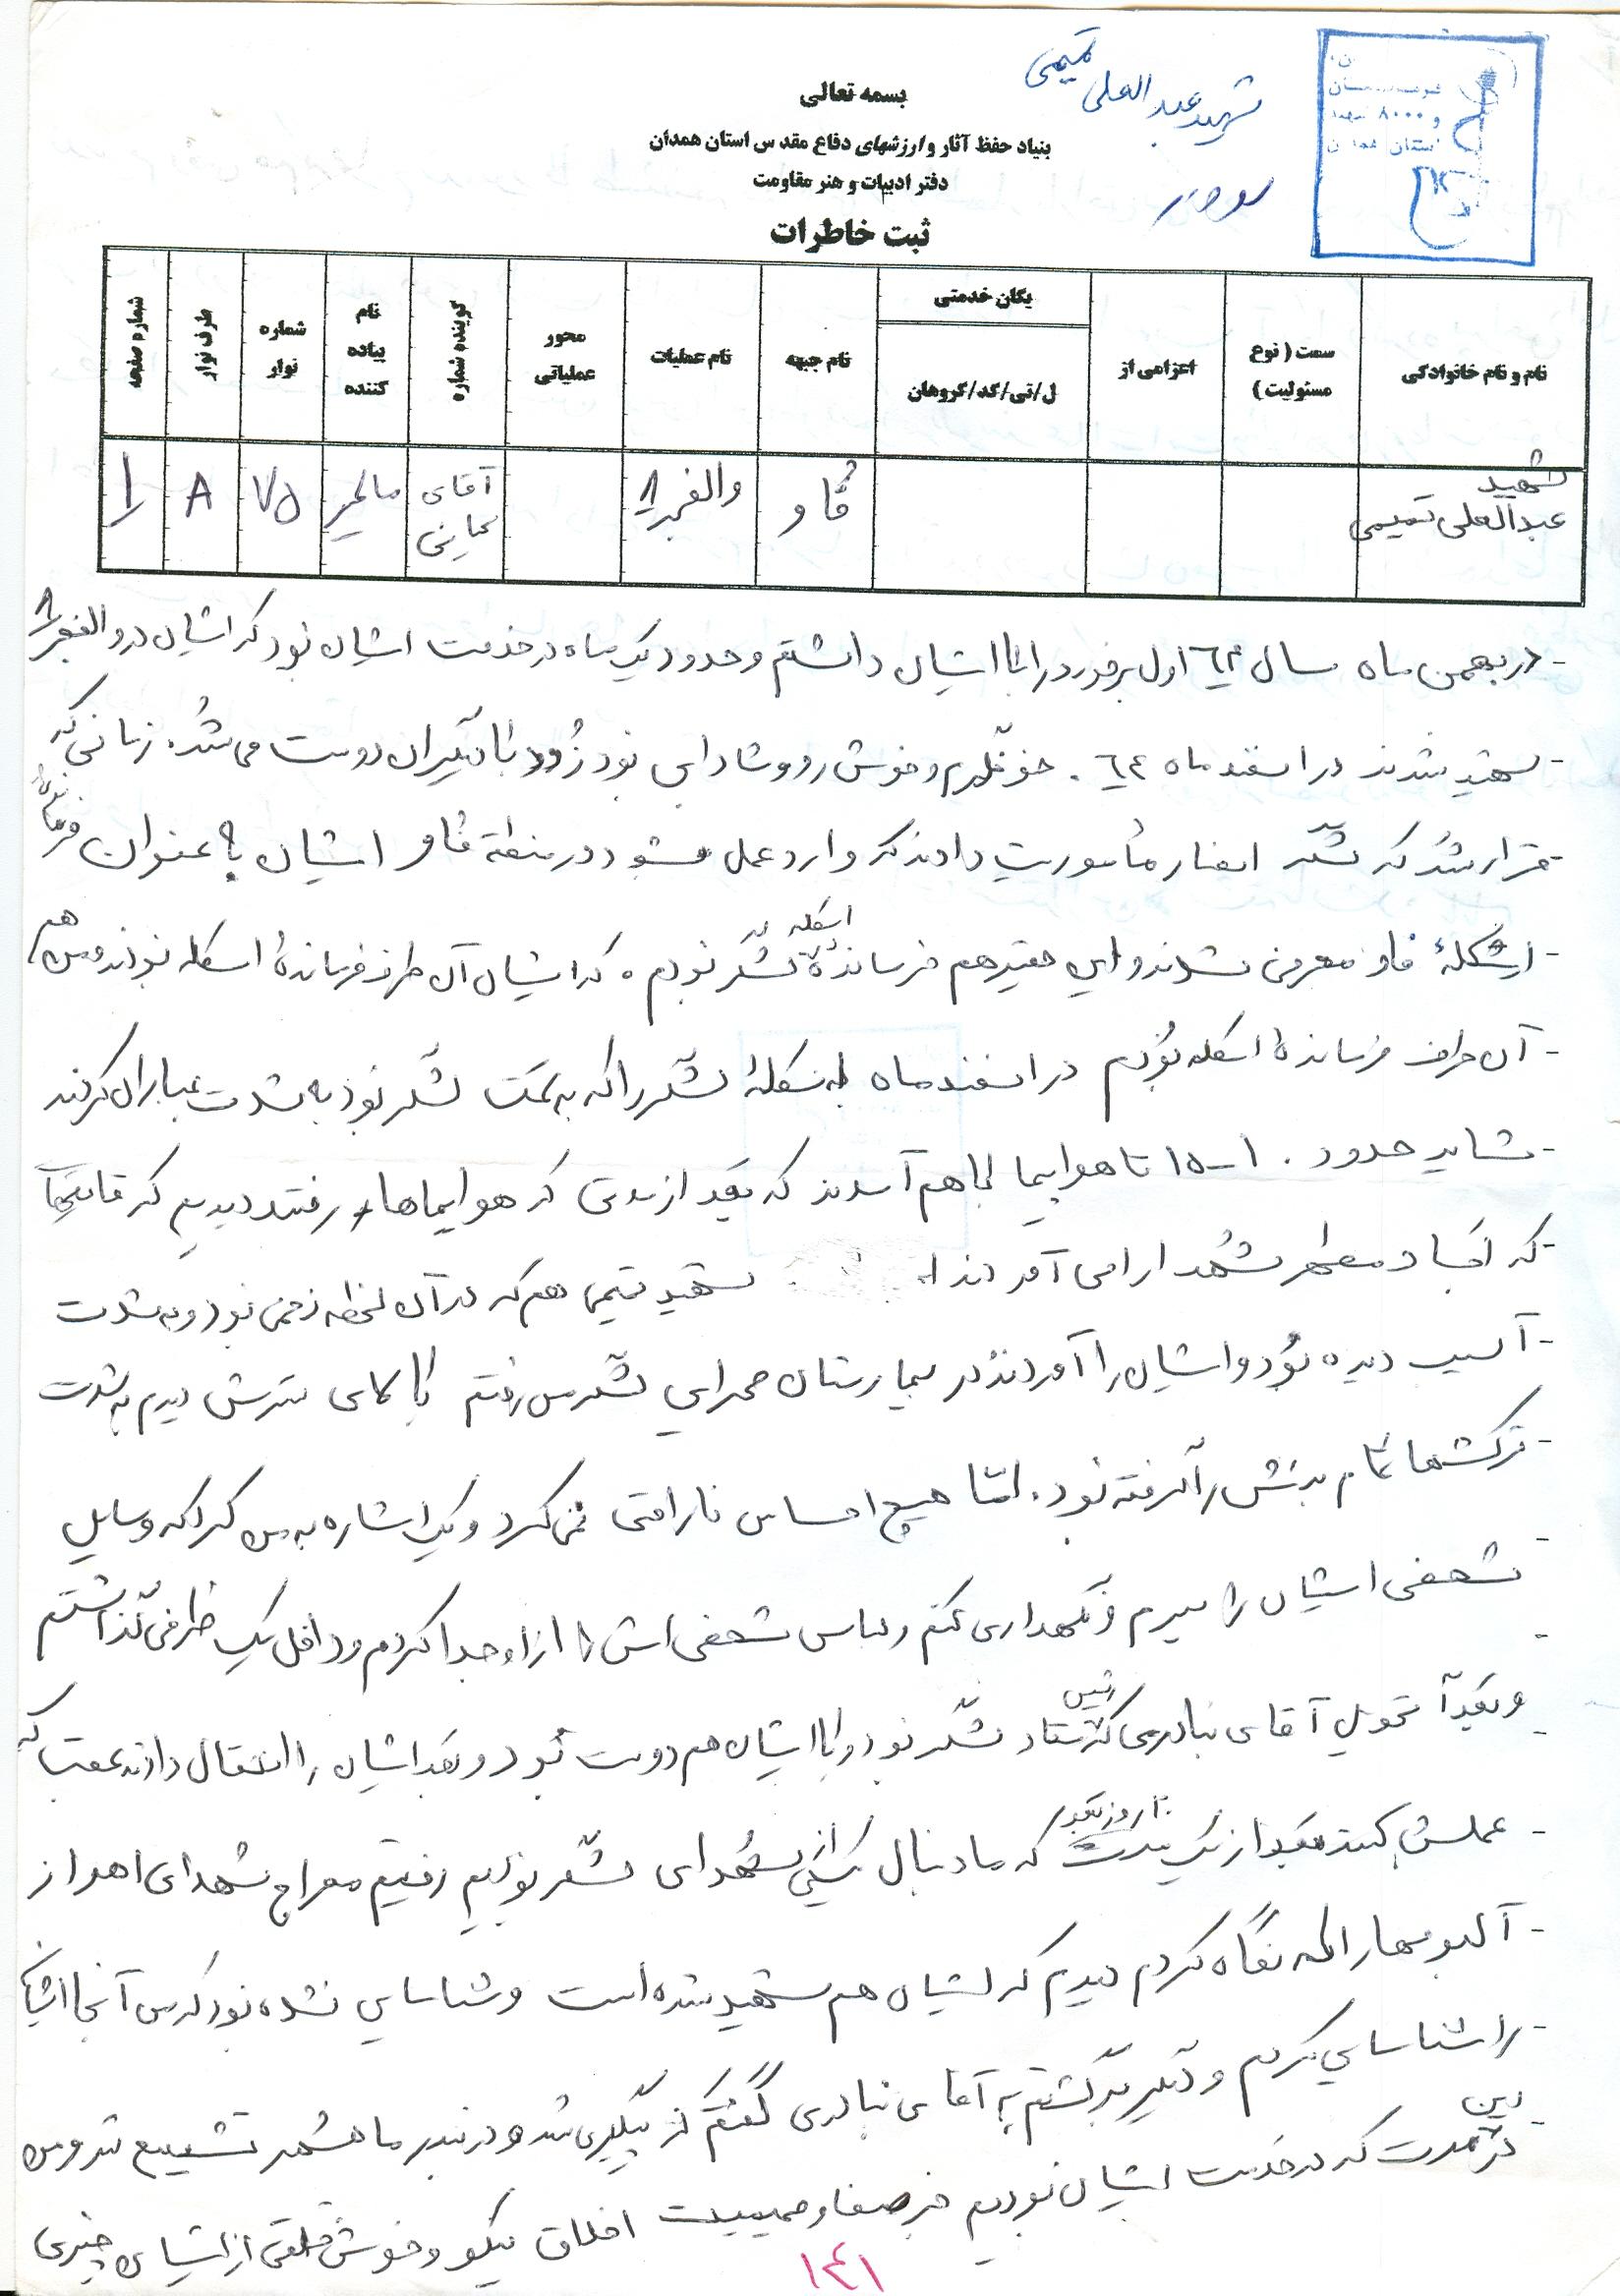 شهید عبدالعلی تمیمی
بسمه تعالی
بنیاد حفظ آثار و ارزشهای دفاع مقدس استان همدان
دفتر ادبیات و هنر مقاومت
ثبت خاطرات
و ۸۰۰۰ شهید
استان همدان
نام و نام خانوادگی
سمت ( نوع مسئولیت )
اعزامی از
یگان خدمتی
ل/تی/گد/گروهان
نام جبهه
نام عملیات
محور عملیاتی
گوینده شماره
نام پیاده کننده
شماره نوار
طرف نوار
شماره صفحه
شهید عبدالعلی تمیمی
فاو
والفجر ۸
آقای
۷۵
A
۱
- در بهمن ماه سال ٦٤ اول برخورد را با ایشان داشتم و حدود یک ماه در خدمت ایشان بود که ایشان در والفجر ۸
- شهید شدند در اسفند ماه ٦٤ . خونگرم و خوش رو و شادابی بود زود با دیگران دوست می شد. زمانی که
- قرار شد که لشگر انصار مأموریت دادند که وارد عمل شود در منطقه فاو ایشان به عنوان فرمانده
- اسکلهٔ فاو معرفی شدند و این حقیر هم فرماندهٔ اسکله لشگر بودم . که ایشان آن طرف فرماندهٔ اسکله بودند و من هم
- آن طرف فرماندهٔ اسکله بودم در اسفند ماه اسکلهٔ لشگر را که به سمت لشگر بود به شدت بمباران کردند
- شاید حدود ۱۰-۱۵ تا هواپیما با هم آمدند که بعد از مدتی که هواپیماها رفتند دیدیم که قایقها
- که اجساد مطهر شهدا را می آوردند . شهید تمیمی هم که در آن لحظه زخمی بود و به شدت
- آسیب دیده بود و ایشان را آوردند در بیمارستان صحرایی لشگر من رفتم بالای سرش دیدم به شدت
- ترکشها تمام بدنش را گرفته بود. امّا هیچ احساس ناراحتی نمی کرد و یک اشاره به من کرد که وسایل
- شخصی ایشان را ببرم و نگهداری کنم و لباس شخصی اش را از او جدا کردم و داخل یک ظرفی گذاشتم
- و بعداً تحویل آقای نبادری که رئیس ستاد لشگر بود و با ایشان هم دوست بود و بعد ایشان را انتقال دادند عقب که
- عملش کنند بعد از یک مدت ۱۰ روز بعد که ما دنبال یکی از شهدای لشگر بودیم رفتیم معراج شهدای اهواز
- آلبومها را که نگاه کردم دیدم که ایشان هم شهید شده است و شناسایی نشده بود که من آنجا ایشان
- را شناسایی کردم و دیگر برگشتم به آقای نبادری گفتم که پیگیری شد و در بندر ماهشهر تشییع شد و من
- در این مدت که در خدمت ایشان بودیم جز صفا و صمیمیت اخلاق نیکو و خوش خلقی از ایشان چیزی
۱٤۱